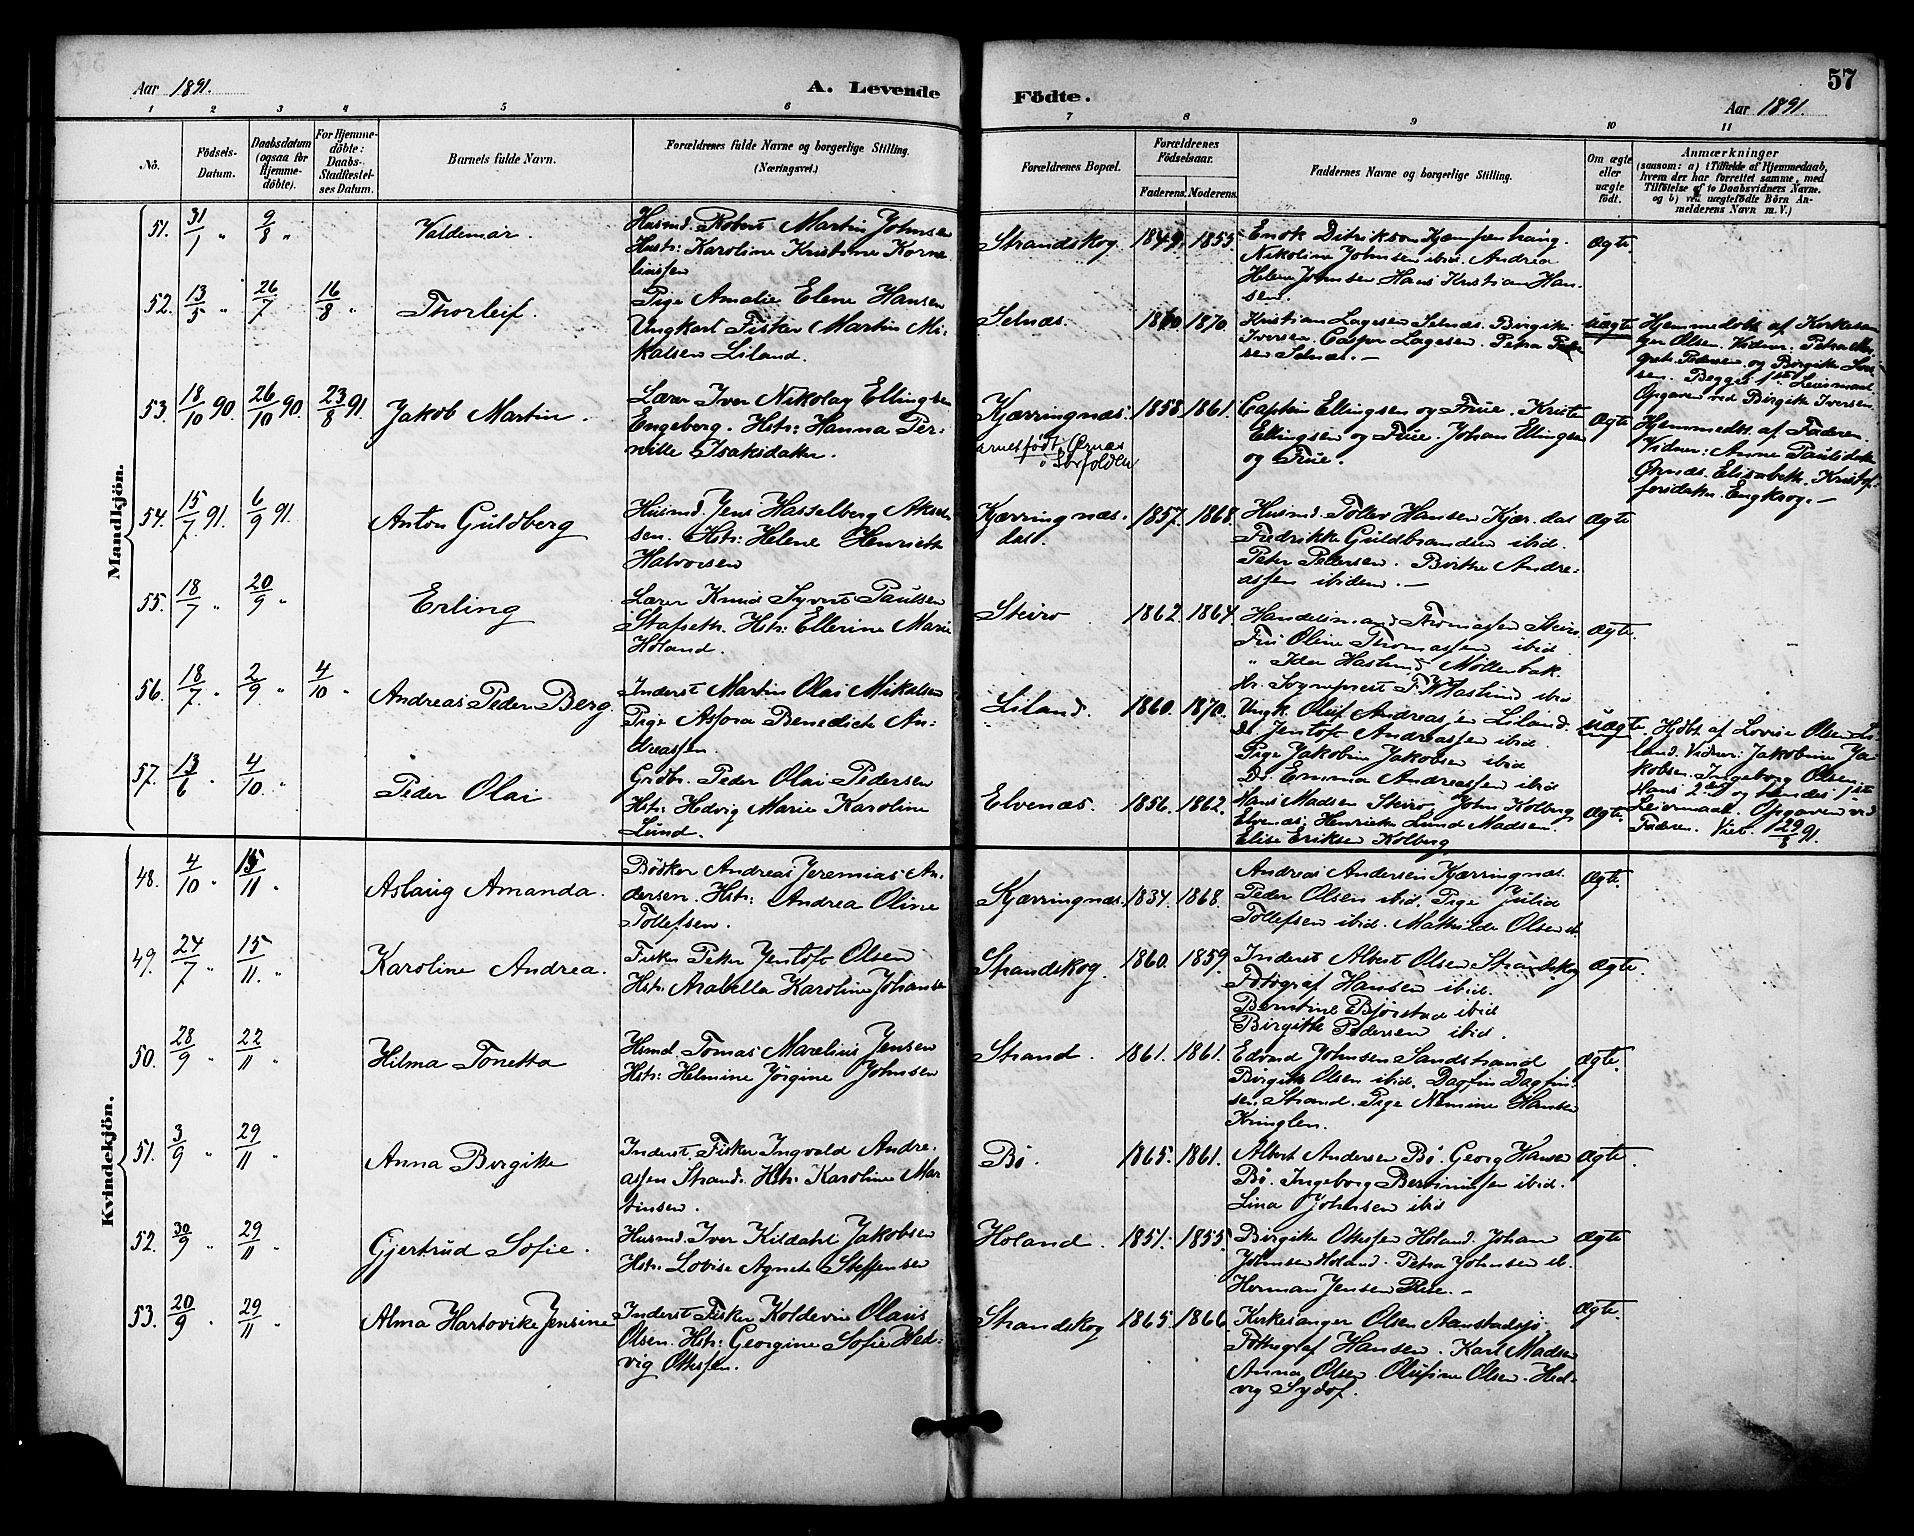 57
Aar 1891.
A. Levende
Födte.
Aar 1891.
1 2 3 4 5 6 7 8 9 10 11
No.
Födsels-
Datum.
Daabsdatum
(ogsaa før
Hjemme-
døbte).
For Hjemme-
döbte:
Daabs-
Stadfæstel-
ses Datum.
Barnets fulde Navn.
Forældrenes fulde Navne og borgerlige Stilling.
(Næringsvei.)
Forældrenes Bopæl.
Forældrenes
Födselsaar.
Faderens. Moderens.
Faddernes Navne og borgerlig Stilling.
Om ægte
eller
uægte
födt.
Anmærkninger
(saasom: a) i Tilfælde af Hjemmedaab,
hvem der har forrettet samme, med
Tilföielse af to Daabsvidners Navne.
og b) ved uægtefödte Börn An-
melderens Navn m. V.)
Mandkjön.
51. 31/1 " 9/8 "
Valdemar.
Husmd. Robert Martin Johnsen
Hustr: Karoline Kristine Korne-
liussen
Strandskog. 1849. 1855.
Enok Ditrikson Kjempenhaug.
Nikoline Johnsen ibid. Andrea
Helene Johnsen Hans Kristian Han-
sen.
Ægte.
52. 13/5 " 26/7 " 16/8 "
Thorleif.
Pige Amalie Elene Hansen
Ungkarl Fisker Martin Mi-
kalsen Liland.
Selnæs. 1870.
Kristian Lagesen Selnæs. Birgitte
Iversen. Casper Lagesen. Petra Peder
sen Selnæs. -
uægte
Hjemmedöbt af Kirkesan
ger Olsen. Vidner. Petra Mar
grete Pedersen og Birgitte Iver
sen. Begges 1ste Leiermaal.
Opgaven ved Birgitte Iversen.
53. 18/10 90. 26/10 90. 23/8 91.
Jakob Martin.
Lærer Iver Nikolay Ellingsen
Engeberg. Hstr: Hanna Per-
nille Isaksdatter.
Kjærringnæs.
Barnet födt: Ørnæs
i Sörfolden
1858. 1861.
Captein Ellingsen og Frue. Kriste
Ellingsen og Frue. Johan Ellingsen
og Frue.
Ægte
Hjemmedbt. af Faderen.
Vidner: Anne Paulsdatter
Ørnæs. Elisabeth Kristof-
fersdatter. Engkrog. -
54. 15/7 91. 6/9 91.
Anton Guldberg
Husmd. Jens Hasselberg Aksel-
sen. Hstr: Helene Henriette
Halvorsen
Kjærringnæs-
dal. 1857. 1868.
Husmd. Tollev Hansen Kjær. dal
Fredrikke Guldbrandsen ibid.
Peter Pedersen. Birthe Andre-
assen ibidem. -
Ægte
55. 18/7 " 20/9 "
Erling
Lærer Knud Syvert Paulsen
Stafseth. Hstr: Ellerine Marie
Höland.
Steiro 1862. 1864.
Handelsmand Thomassen Steiro
Fru Oline Thomassen ibid
" Ida Haslund Möllebak.
Hr. Sogneprest F. W. Haslund ibid
Ægte.
56. 18/7 " 2/9 " 4/10 "
Andreas Peder Berg.
Inderst Martin Olai Mikalsen
Pige Asfora Benedicte An-
dreassen.
Liland. 1860. 1870.
Ungk. Oluf Andreassen Liland.
Do. Jentoft Andreassen ibid
Pige Jakobine Jakobsen ibid
Do. Emma Andreassen ibid
uægte.
Hjdbt. af Lovise Olsen Li-
land. Vidner: Jakobine Ja
kobsen. Ingeborg Olsen.
Hans 2det og hendes 1ste
Leiermaal. Opgaven ved
Faderen. Viet. 29/8 91.
57. 13/6 " 4/10 "
Peder Olai
Grdbr. Peder Olai Pedersen
Hstr: Hedvig Marie Karoline
Lund.
Elvenæs. 1856. 1862.
Hans Madsen Steiro, John Kolberg
Elvenæs. Henriette Lund Madsen.
Elise Eriksen Kolberg
Ægte.
Kvindekjön.
48. 4/10 " 15/11 "
Aslaug Amanda.
Bödker Andreas Jeremias An-
dersen. Hstr: Andrea Oline
Tollefsen.
Kjærringnæs. 1834. 1868.
Andreas Andersen Kjærringnæs.
Peder Olsen ibid. Pige Julia
Tollefsen ibid. Mathilde Olsen ib.
Ægte.
49. 24/7 " 15/11 "
Karoline Andrea.
Fisker Peter Jentoft Olsen
Hstr: Arabella Karoline Johansen
Strandskog. 1860. 1859.
Inderst Albert Olsen Strandskog
Fotograf Hansen ibid.
Berntine Bjørstad ibid
Birgitte Pedersen ibid.
Ægte.
50. 28/9 " 22/11 "
Hilma Tonetta
Hsmd. Tomas Marelius Jensen
Hstr: Helmine Jörgine Johnsen
Strand. 1861. 1861.
Edvard Johnsen Sandstrand
Birgitte Olsen ibid. Dagfin Dagfin-
sen Strand. Pige Nemine Hansen
Kringlen.
Ægte.
51. 3/9 " 29/11 "
Anna Birgitte
Inderst, Fisker Ingvald Andre-
assen Strand. Hstr: Karoline Mar
tinsen.
Bö. 1865. 1861.
Albert Andersen Bö. Georg Hansen
Bö. Ingeborg Bertinussen ibid.
Lina Johnsen ibid
Ægte.
52. 30/9 " 29/11 "
Gjertrud Sofie.
Husmd. Iver Kildahl Jakobsen
Hstr: Lovise Agnete Steffensen
Holand. 1851. 1855.
Birgitte Ottesen Holand. Johan
Johnsen Holand. Petra Johnsen ib.
Herman Jensen -
Ægte
53. 20/9 " 29/11 "
Alma Hartovike Jensine
Inderst Fisker Koldevin Olaus
Olsen. Hstr: Georgine Sofie Hed-
vig Ottesen.
Strandskog 1865. 1866.
Kirkesanger Olsen Aanstadsjö.
Fotograf Hansen. Karl Madsen
Anna Olsen. Olufine Olsen. Hed-
vig Sydof.
Ægte.